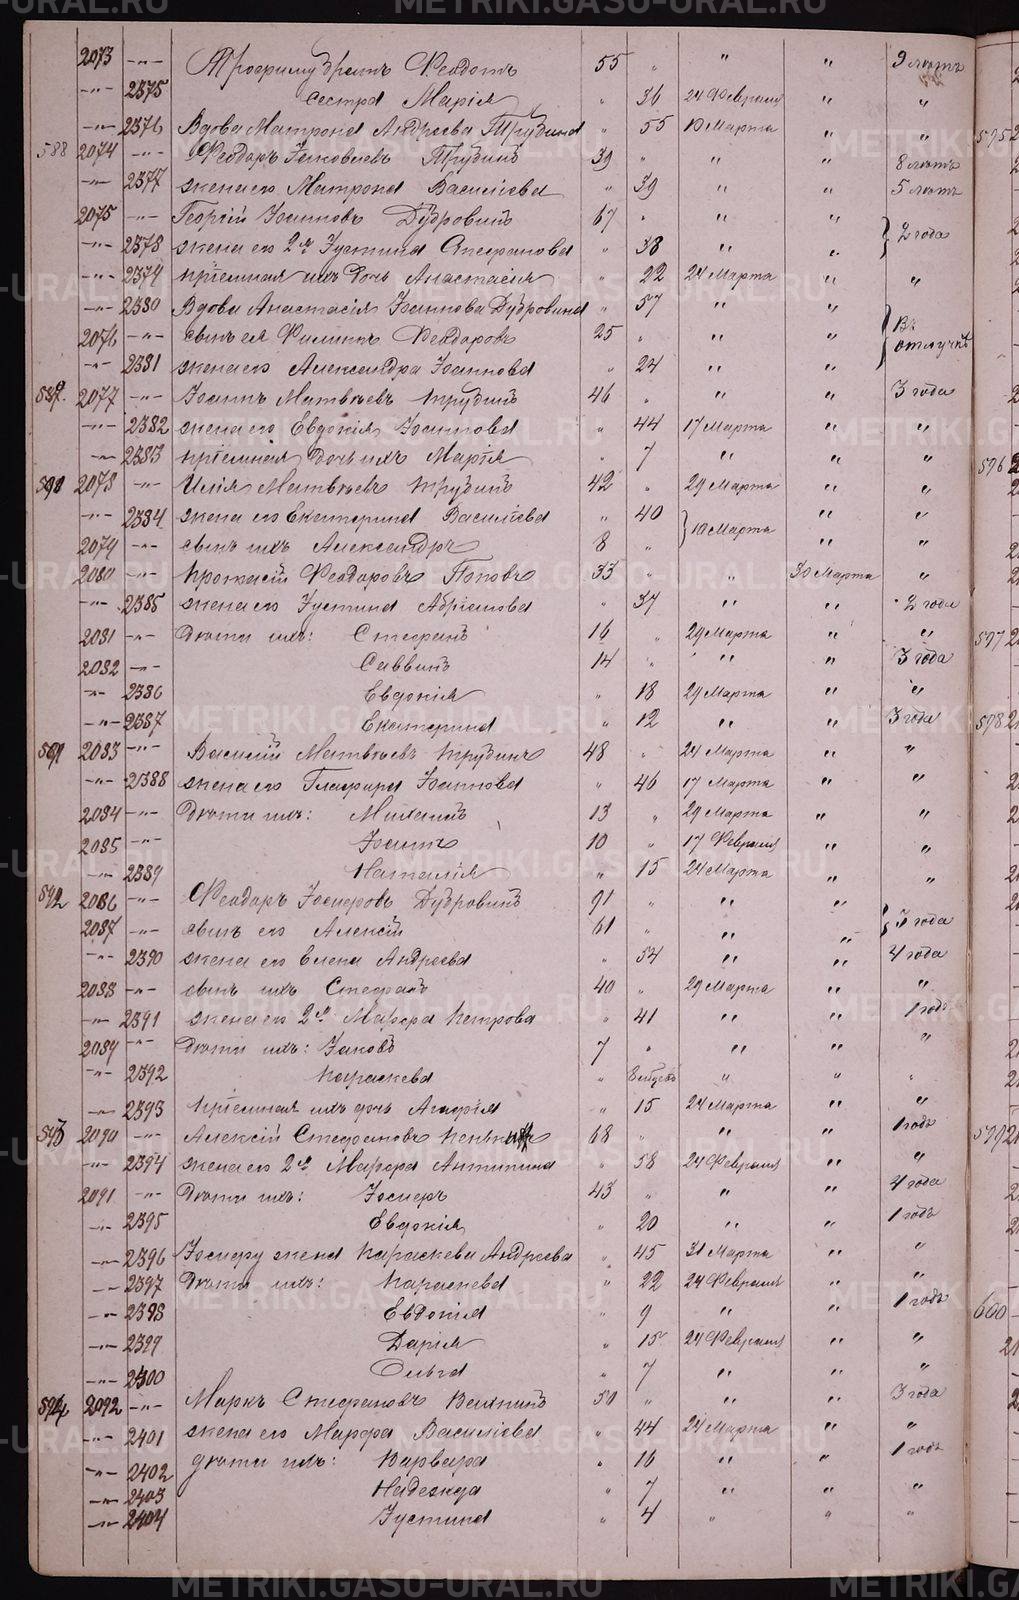 METRIKI.GASO-URAL.RU
2073 -"- Трофиму братъ Ѳеодотъ 55 " " " 9 лѣтъ
-"- 2375 сестра Марія " 36 24 Февраля " "
-"- 2376 Вдова Матрона Андреева Трубина " 55 10 Марта " "
588 2074 -"- Ѳеодоръ Іаковлевъ Трубинъ 39 " " " 8 лѣтъ
-"- 2377 жена его Матрона Василіева " 39 " " 5 лѣтъ
2075 -"- Георгій Іоанновъ Дубровинъ 67 " " " 2 года
-"- 2378 жена его 2я Іустина Стефанова " 38 " "
-"- 2379 пріемная ихъ дочь Анастасія " 22 24 Марта " "
-"- 2380 Вдова Анастасія Іоаннова Дубровина " 57 " " Въ отлучкѣ
2076 -"- сынъ ея Филиппъ Ѳеодоровъ 25 " " "
-"- 2381 жена его Александра Іоаннова " 24 " "
589 2077 -"- Іоаннъ Матвѣевъ Трубинъ 46 " " " 3 года
-"- 2382 жена его Евдокія Іоаннова " 44 17 Марта " "
-"- 2383 пріемная дочь ихъ Марія " 7 " " "
590 2078 -"- Илія Матвѣевъ Трубинъ 42 " 29 Марта " "
-"- 2384 жена его Екатерина Василіева " 40 10 Марта " "
2079 -"- сынъ ихъ Александръ 8 " " "
2080 -"- Протасій Ѳеодоровъ Поповъ 33 " " 30 Марта "
-"- 2385 жена его Іустина Адріанова " 37 " " 2 года
2081 -"- Дѣти ихъ: Стефанъ 16 " 29 Марта " "
2082 -"- Саввинъ 14 " " " 3 года
-"- 2386 Евдокія " 18 29 Марта " "
-"- 2387 Екатерина " 12 " " 3 года
591 2083 -"- Василій Матвѣевъ Трубинъ 48 " 24 Марта " "
-"- 2388 жена его Глафира Іоаннова " 46 17 Марта " "
2084 -"- Дѣти ихъ: Михаилъ 13 " 29 Марта " "
2085 -"- Іоаннъ 10 " 17 Февраля " "
-"- 2389 Наталія " 15 24 Марта " "
592 2086 -"- Ѳеодоръ Іосифовъ Дубровинъ 91 " " " 3 года
2087 -"- сынъ его Алексій 61 " " "
-"- 2390 жена его Елена Андреева " 54 " " 4 года
2088 -"- сынъ ихъ Стефанъ 40 " 29 Марта " "
-"- 2391 жена его 2я Марфа Петрова " 41 " " 1 годъ
2089 -"- Дѣти ихъ: Іаковъ 7 " " " "
-"- 2392 Параскева " " " "
-"- 2393 пріемная ихъ дочь Агафія " 15 24 Марта " "
593 2090 -"- Алексій Стефановъ 68 " " " 1 годъ
-"- 2394 жена его 2я Марфа Антипина " 58 24 Февраля " "
2091 -"- Дѣти ихъ: Іосифъ 43 " " " 4 года
-"- 2395 Евдокія " 20 " " 1 годъ
-"- 2396 Іосифу жена Параскева Андреева " 45 31 Марта " "
-"- 2397 Дѣти ихъ: Параскева " 22 24 Февраля " "
-"- 2398 Евдокія " 9 " " 1 годъ
-"- 2399 Дарія " 15 24 Февраля " "
-"- 2400 Ольга " 7 " " "
594 2092 -"- Маркъ Стефановъ 50 " " " 3 года
-"- 2401 жена его Марфа Василіева " 44 24 Марта " "
-"- 2402 дѣти ихъ: Варвара " 16 " " 1 годъ
-"- 2403 Надежда " 7 " " "
-"- 2404 Іустина " 4 " " "
595
596
597
598
599
600